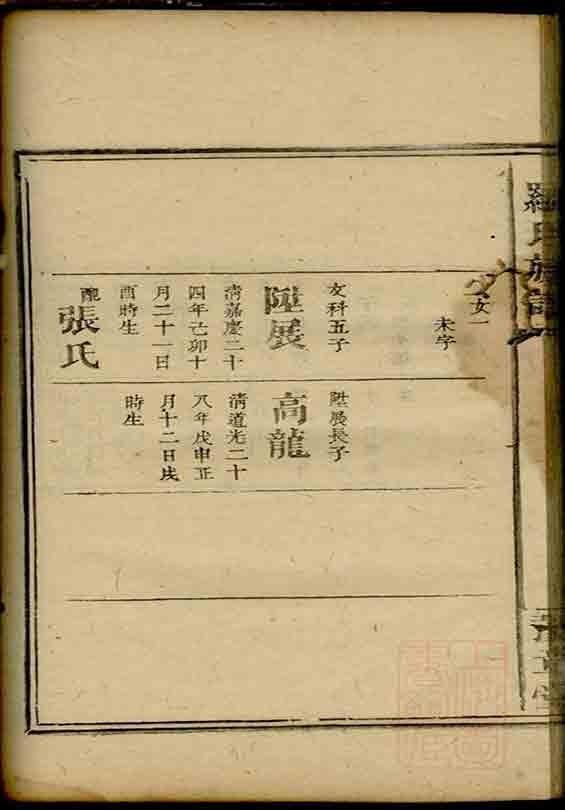 羅氏族譜
女一
未字
文科五子
陞展
清嘉慶二十
四年己卯十
月二十一日
酉時生
配張氏
陞展長子
高龍
清道光二十
八年戊申正
月十二日戌
時生